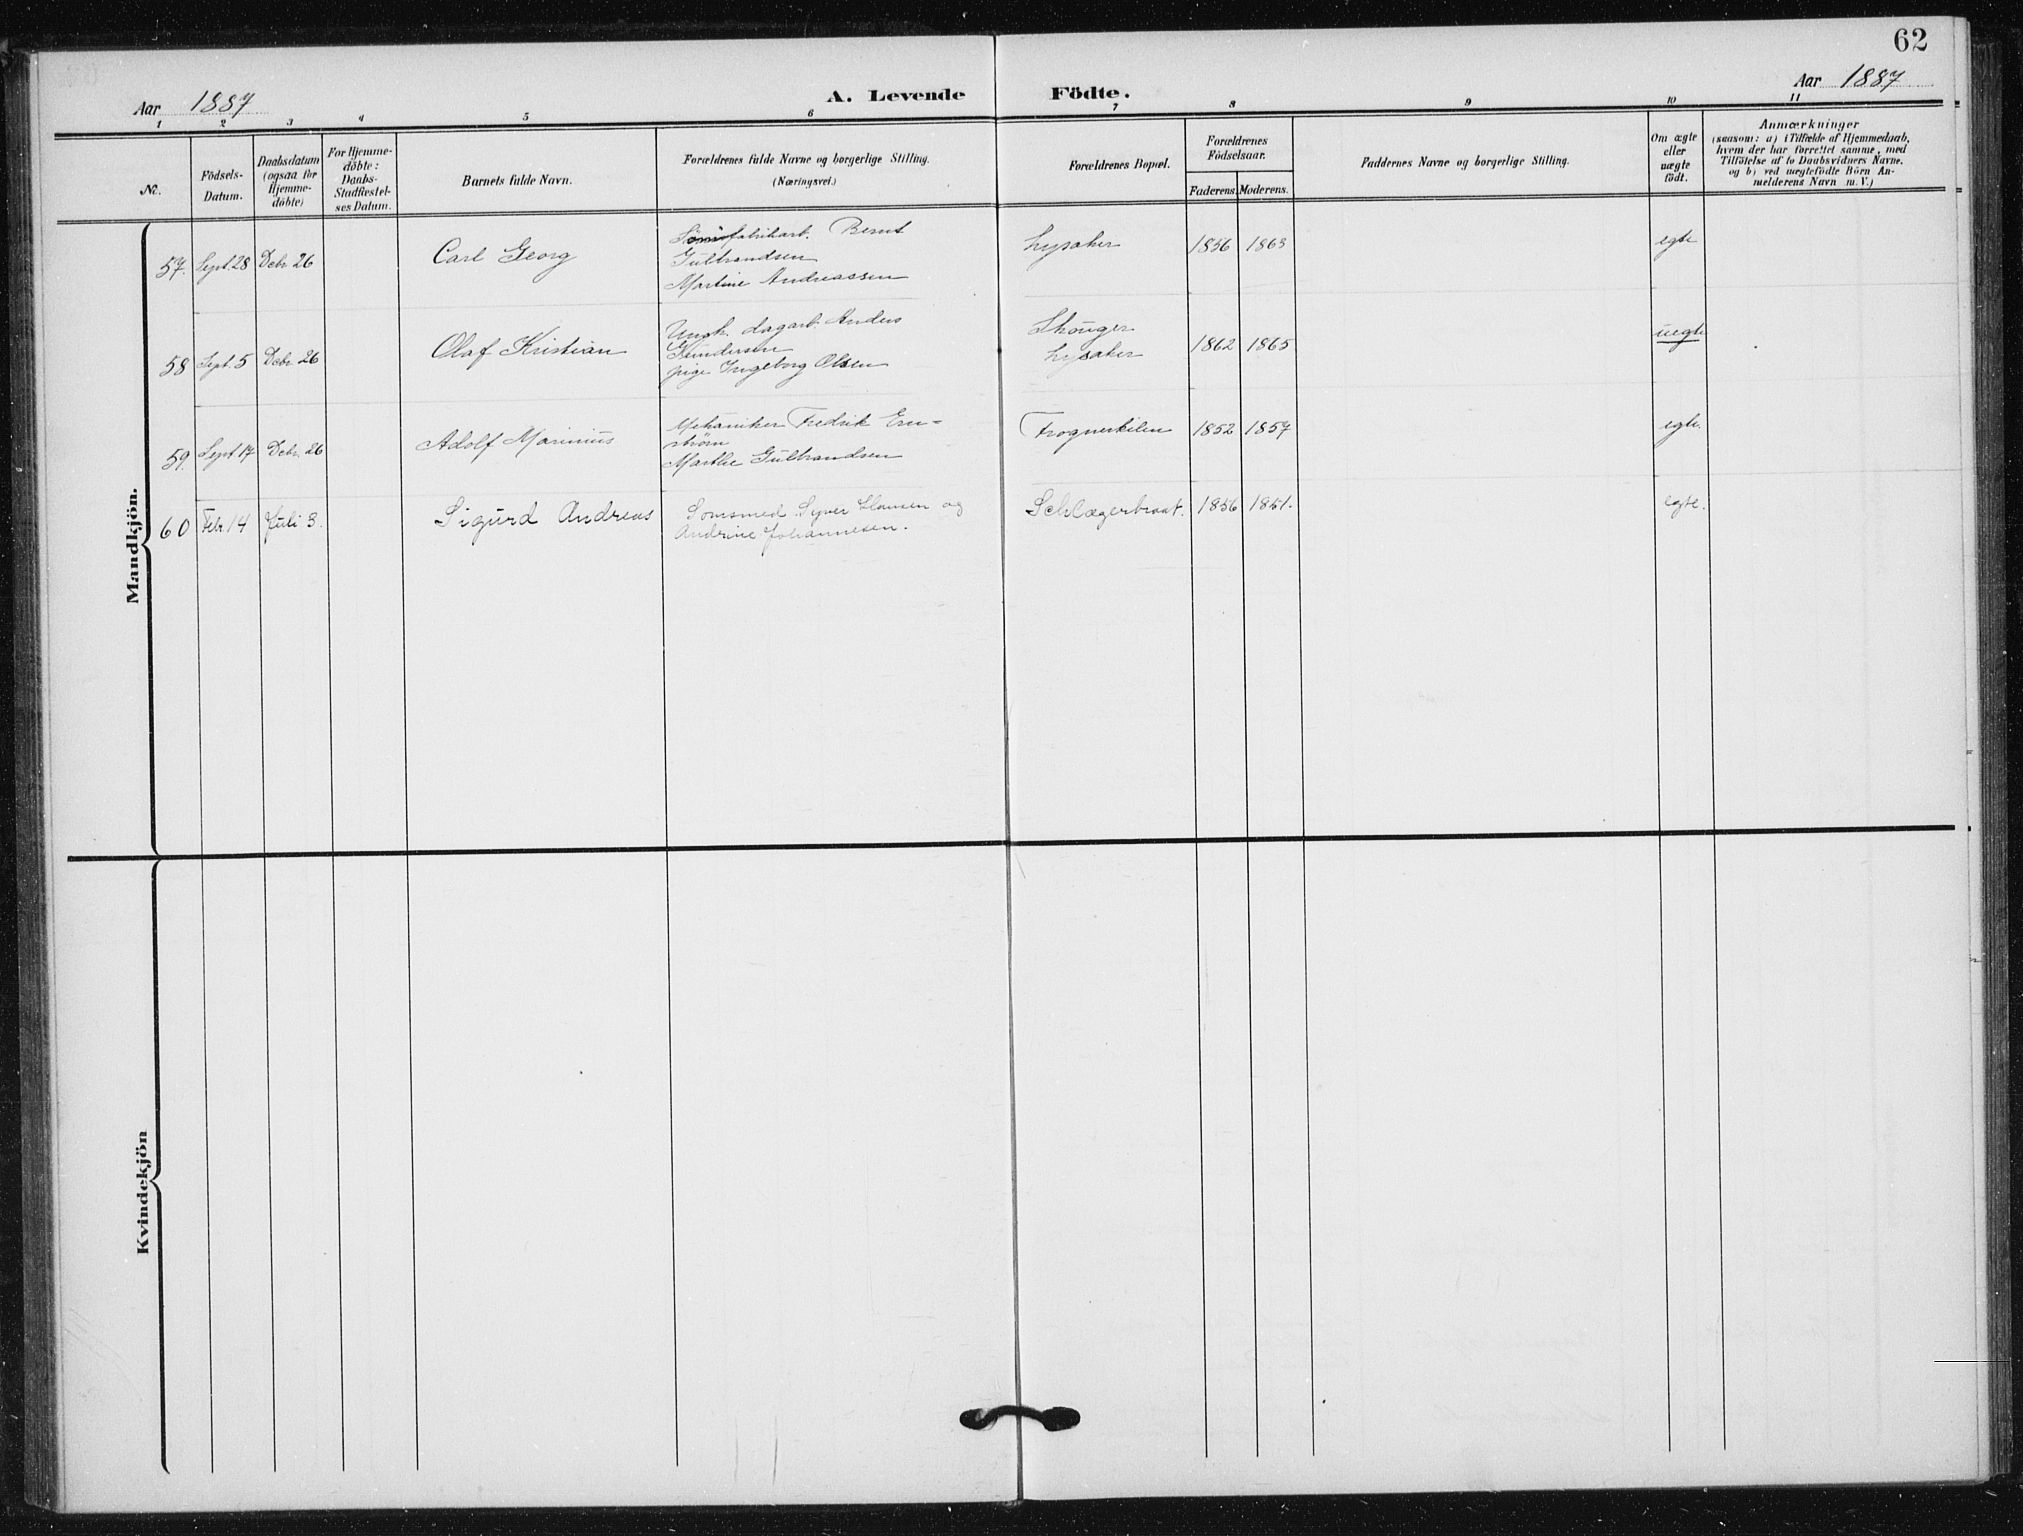 62
Aar 1887
A. Levende Födte.
Aar 1887
1 2 3 4 5 6 7 8 9 10 11
№.
Födsels-
Datum.
Daabsdatum
(ogsaa for
Hjemme-
döbte)
For Hjemme-
döbte:
Daabs-
Stadfæstel-
ses Datum.
Barnets fulde Navn.
Forældrenes fulde Navne og borgerlige Stilling.
(Næringsvei.)
Forældrenes Bopæl.
Forældrenes
Födselsaar.
Faderens. Moderens.
Faddernes Navne og borgerlige Stilling.
Om ægte
eller
uægte
födt.
Anmærkninger
(saasom: a) i Tilfælde af Hjemmedaab,
hvem der har forrettet samme, med
Tilföielse af to Daabsvidners Navne.
og b) ved uægtefödte Börn An-
melderens Navn m. V.)
Mandkjön.
57. Sept. 28 Debr 26 Carl Georg
fabrikarb. Bernt
Gulbrandsen
Martine Andreassen
Lysaker 1856 1863 egte
58 Sept. 5 Debr. 26 Olaf Kristian
Ungk. dagarb. Anders
Gundersen
pige Ingeborg Olsen
Skouger
Lysaker 1862 1865 uegte
59. Sept 17 Debr. 26 Adolf Marinius
Mekaniker Fredrik Ern=
strøm
Marthe Gulbrandsen
Frognerkilen 1852 1857 egte.
60 Febr 14 Juli 3. Sigurd Andreas
Somsmed Syver Hansen og
Andrine Johannesen.
Schlægerbraat. 1856 1851. egte.
Kvindekjön